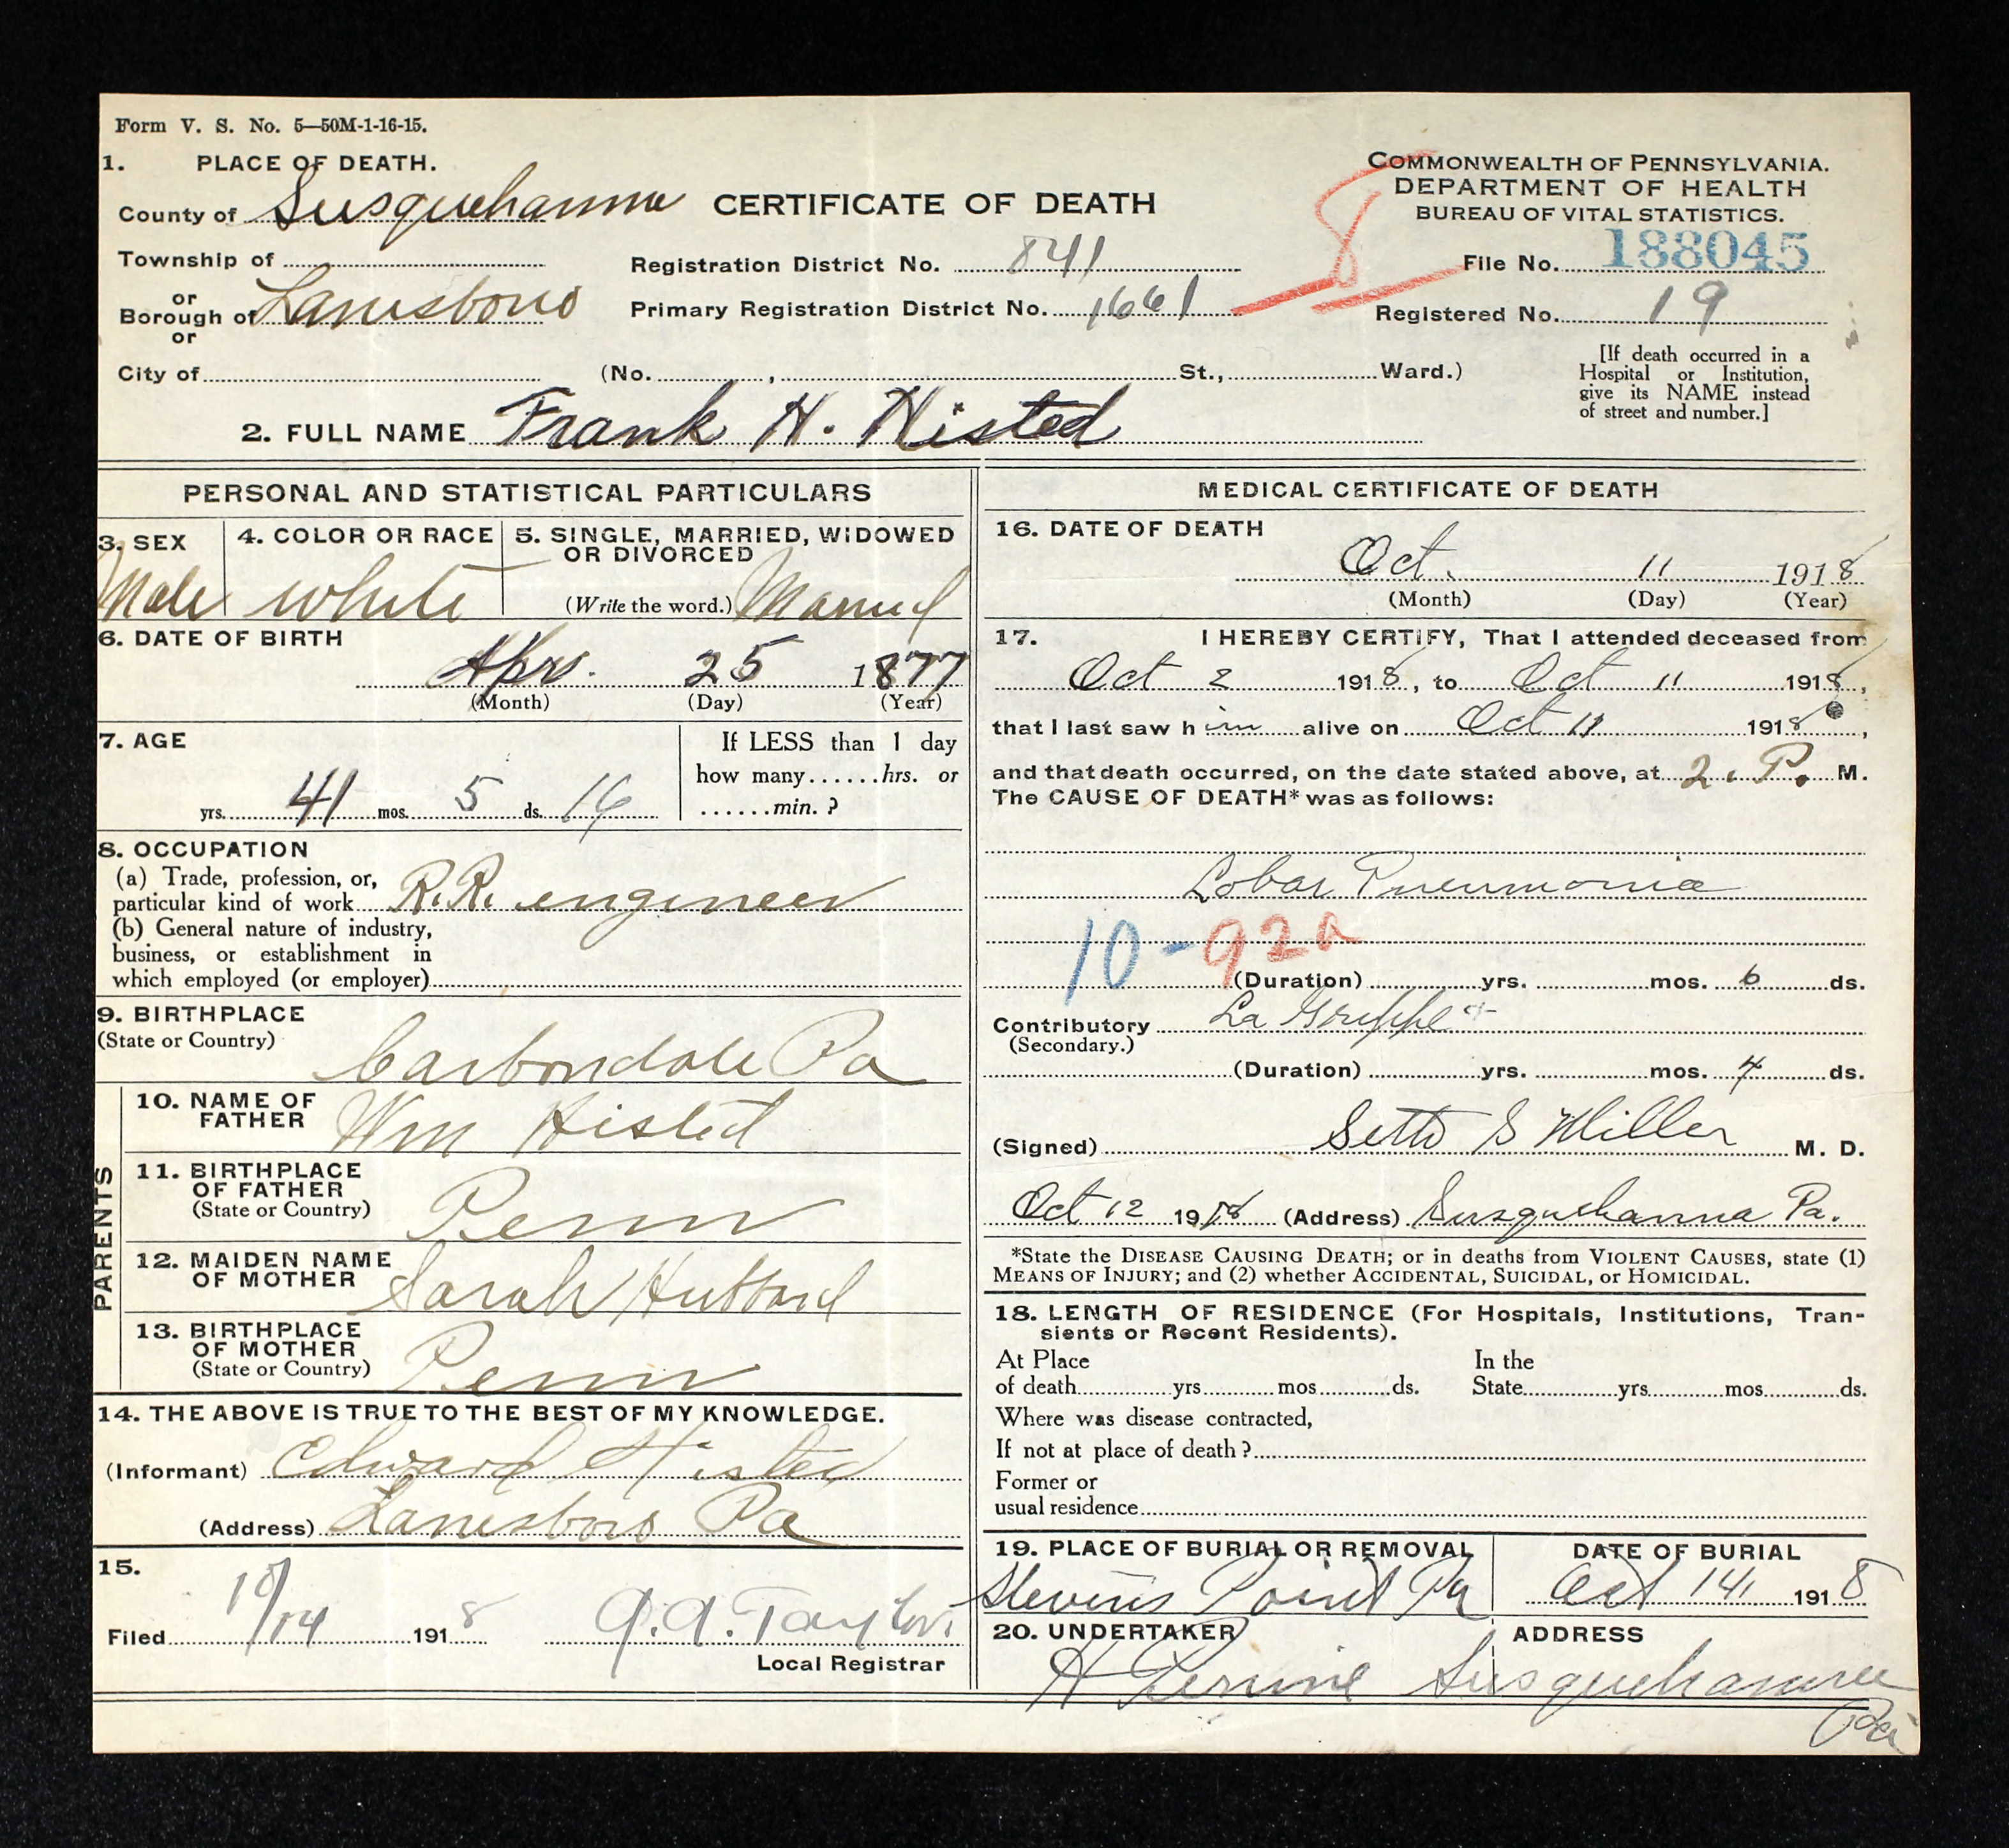 Form V. S. No. 5—50M-1-16-15.
1. PLACE OF DEATH.
County of Susquehanna
CERTIFICATE OF DEATH
COMMONWEALTH OF PENNSYLVANIA.
DEPARTMENT OF HEALTH
BUREAU OF VITAL STATISTICS.
8
Township of
or
Borough of Lanesboro
or
City of
Registration District No. 841
Primary Registration District No. 1661
File No. 188045
Registered No. 19
(No. , St., Ward.)
[If death occurred in a
Hospital or Institution,
give its NAME instead
of street and number.]
2. FULL NAME Frank H. Histed
PERSONAL AND STATISTICAL PARTICULARS
3. SEX
Male
4. COLOR OR RACE
White
5. SINGLE, MARRIED, WIDOWED
OR DIVORCED
(Write the word.) Married
6. DATE OF BIRTH
Apr. 25 1877
(Month) (Day) (Year)
7. AGE
yrs. 41 mos. 5 ds. 16
If LESS than 1 day
how many......hrs. or
......min. ?
8. OCCUPATION
(a) Trade, profession, or,
particular kind of work R.R. engineer
(b) General nature of industry,
business, or establishment in
which employed (or employer)
9. BIRTHPLACE
(State or Country)
Carbondale Pa
PARENTS
10. NAME OF
FATHER
Wm Histed
11. BIRTHPLACE
OF FATHER
(State or Country)
Penn
12. MAIDEN NAME
OF MOTHER
Sarah Hubbard
13. BIRTHPLACE
OF MOTHER
(State or Country)
Penn
14. THE ABOVE IS TRUE TO THE BEST OF MY KNOWLEDGE.
(Informant) Edward Histed
(Address) Lanesboro Pa
15.
Filed 10/14 1918
Taylor
Local Registrar
MEDICAL CERTIFICATE OF DEATH
16. DATE OF DEATH
Oct. 11 1918
(Month) (Day) (Year)
17. I HEREBY CERTIFY, That I attended deceased from
Oct 2 1918, to Oct 11 1918,
that I last saw him alive on Oct 11 1918,
and that death occurred, on the date stated above, at 2. P. M.
The CAUSE OF DEATH* was as follows:
Lobar Pneumonia
10-92a
(Duration) yrs. mos. 6 ds.
Contributory La Grippe
(Secondary.)
(Duration) yrs. mos. 4 ds.
(Signed) Seth S Miller M. D.
Oct 12 1918 (Address) Susquehanna Pa.
*State the DISEASE CAUSING DEATH; or in deaths from VIOLENT CAUSES, state (1)
MEANS OF INJURY; and (2) whether ACCIDENTAL, SUICIDAL, or HOMICIDAL.
18. LENGTH OF RESIDENCE (For Hospitals, Institutions, Tran-
sients or Recent Residents).
At Place
of death yrs mos ds.
In the
State yrs mos ds.
Where was disease contracted,
If not at place of death ?
Former or
usual residence
19. PLACE OF BURIAL OR REMOVAL
Stevens Point Pa
DATE OF BURIAL
Oct 14, 1918
20. UNDERTAKER
H Perrine
ADDRESS
Susquehanna
Pa